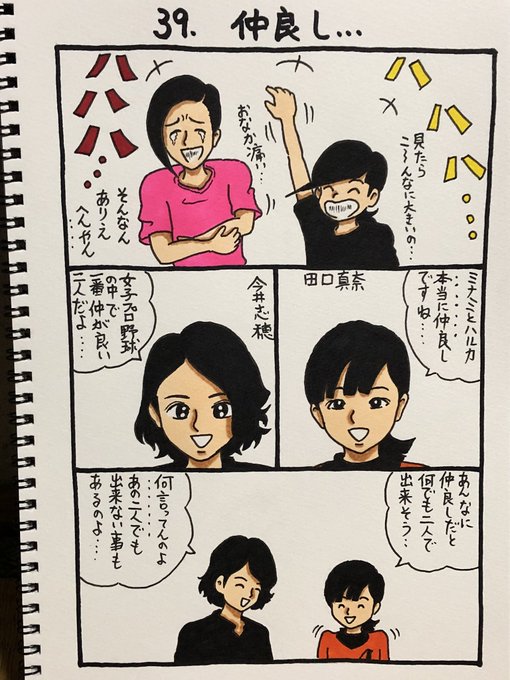 39. 仲良し…
ハハハ…
見たら
こ〜んなに大きいの…
おなか痛い…
ハハハ…
そんなん
ありえ
へんやん
ミナミとハルカ
……
本当に仲良し
ですね…
田口真奈
今井志穂
女子プロ野球
の中で
一番仲が良い
二人だよ…
あんなに
仲良しだと
何でも二人で
出来そう…
何言ってんのよ
……
あの二人でも
出来ない事も
あるのよ…